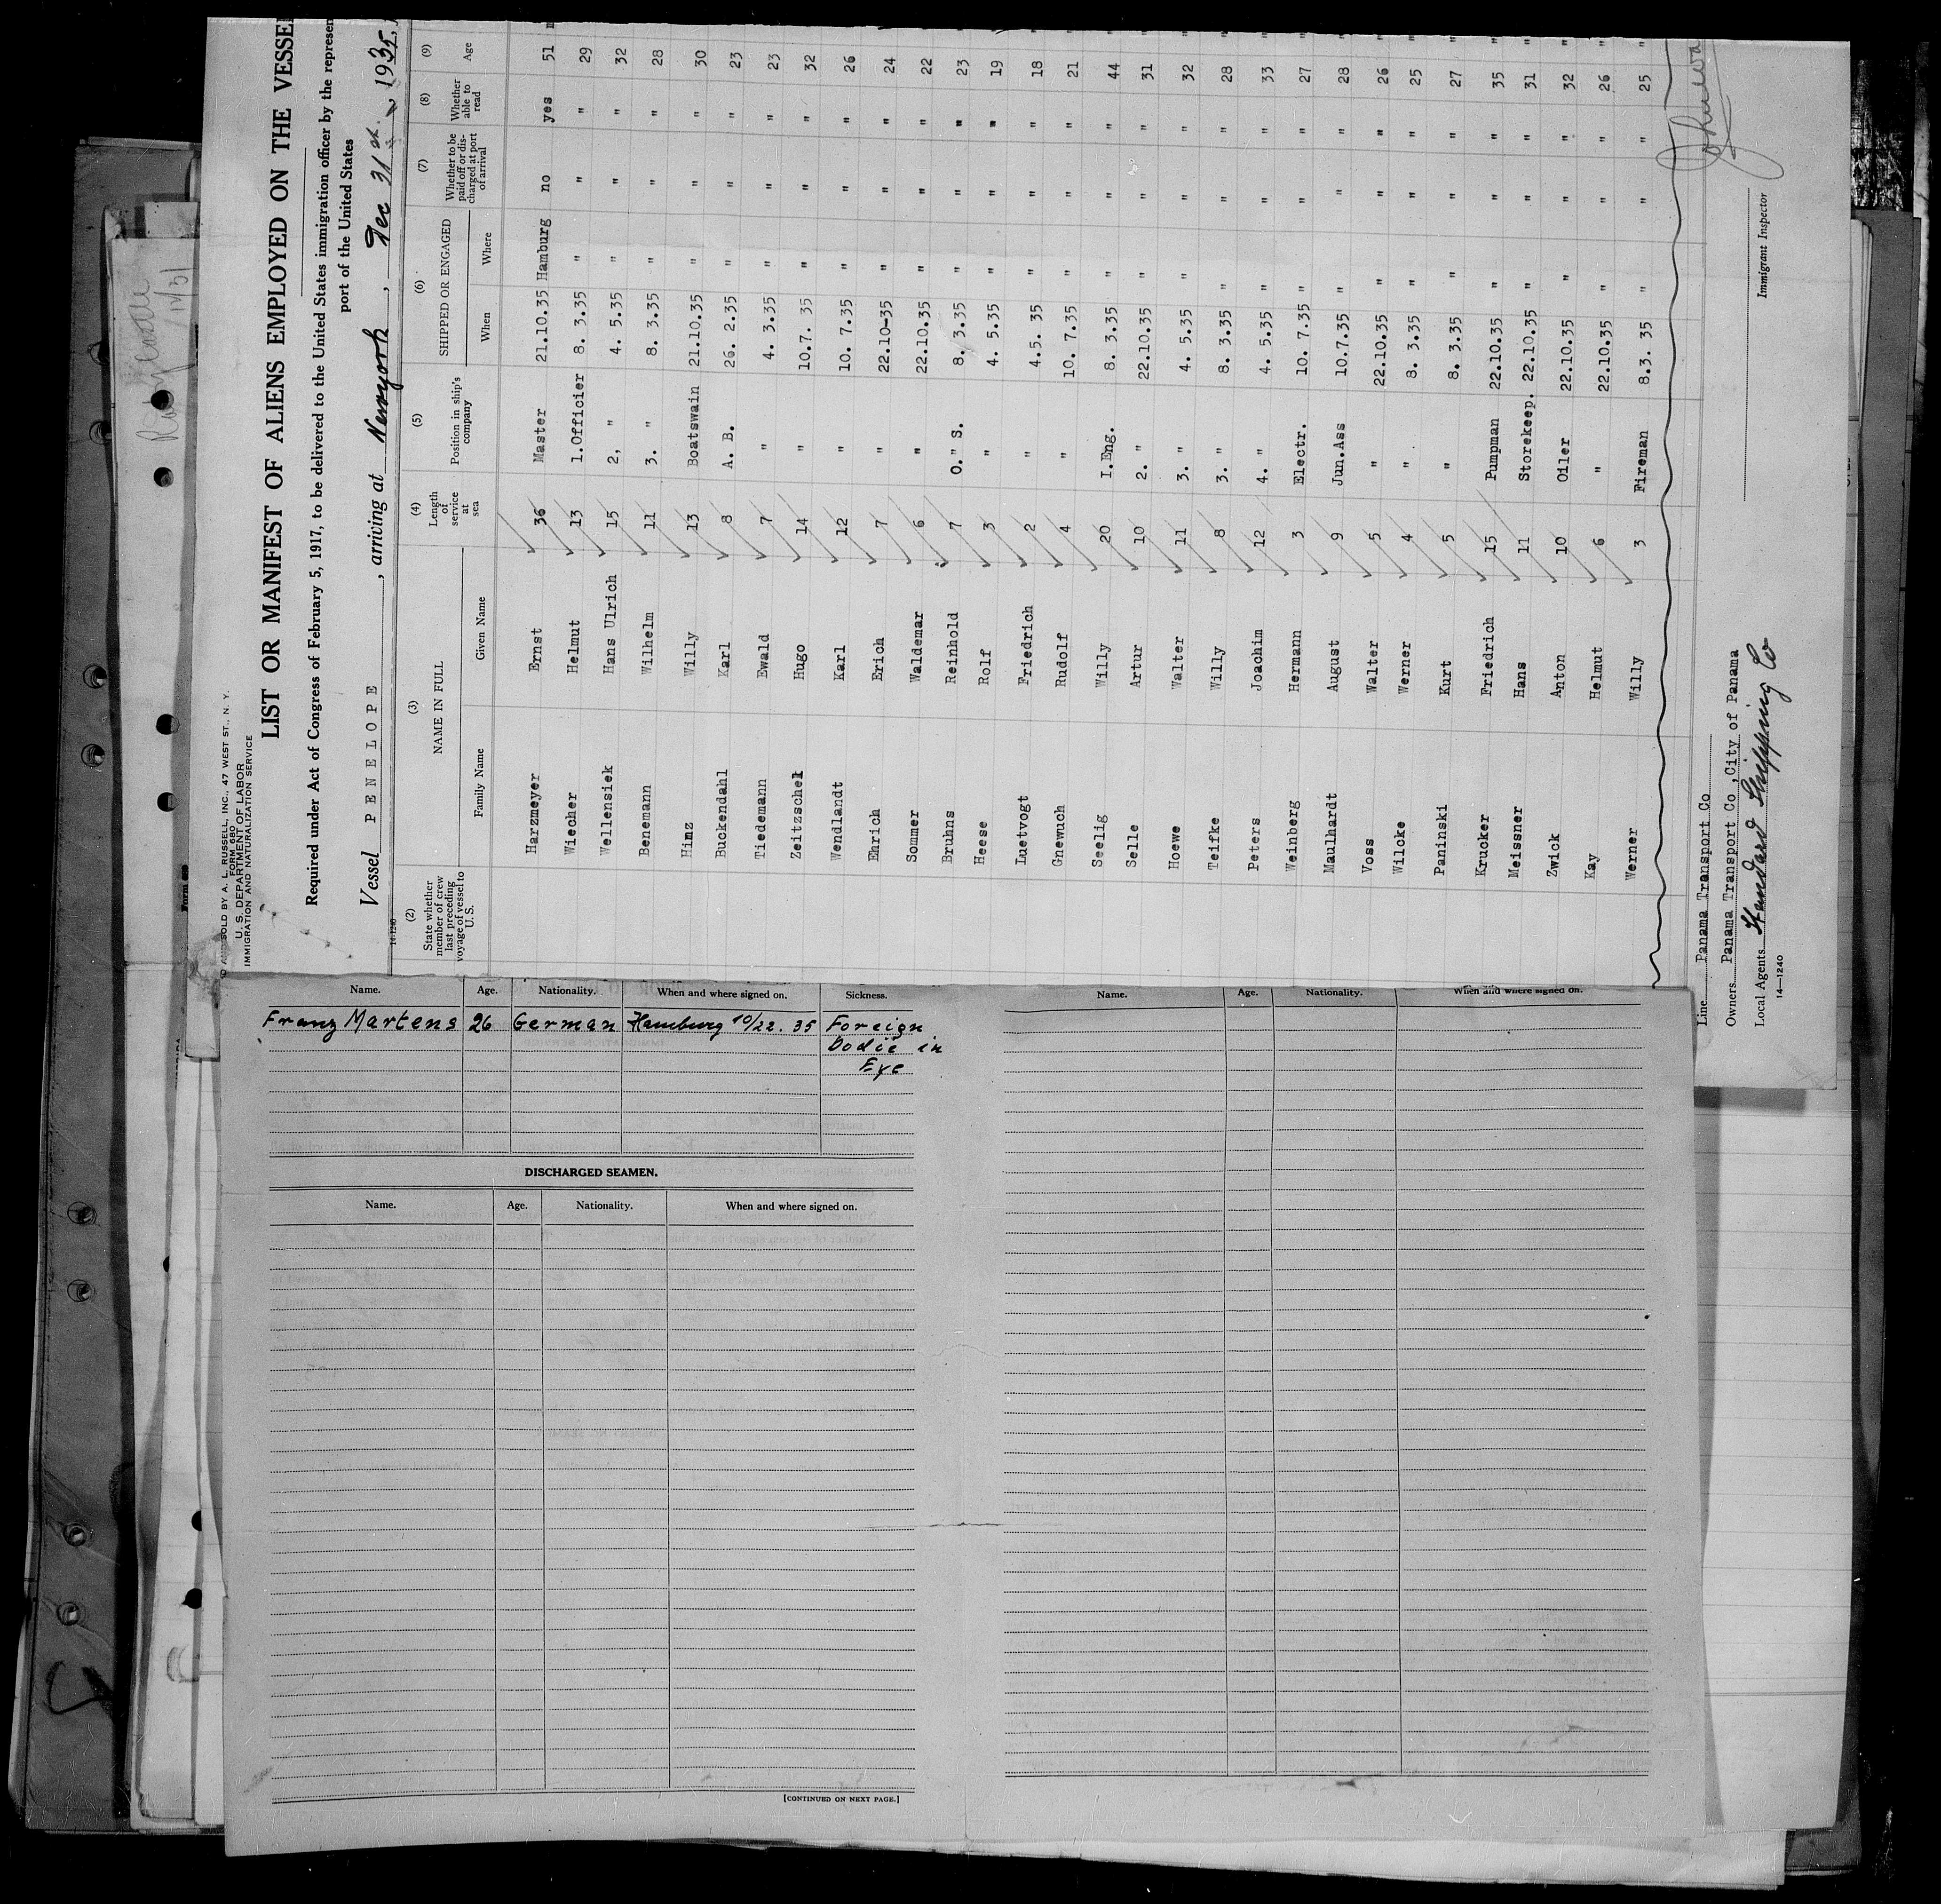 AND SOLD BY A. L. RUSSELL, INC., 47 WEST ST., N. Y.
FORM 680
U. S. DEPARTMENT OF LABOR
IMMIGRATION AND NATURALIZATION SERVICE
LIST OR MANIFEST OF ALIENS EMPLOYED ON THE VESSEL
Required under Act of Congress of February 5, 1917, to be delivered to the United States immigration officer by the represen
port of the United States
Vessel PENELOPE, arriving at Newyork, Dec 31st, 1935,
14-1240
(2) (3) (4) (5) (6) (7) (8) (9)
State whether member of crew last preceding voyage of vessel to U. S. NAME IN FULL Length of service at sea Position in ship's company SHIPPED OR ENGAGED Whether to be paid off or discharged at port of arrival Whether able to read Age
Family Name Given Name When Where
Harzmeyer Ernst 36 Master 21.10.35 Hamburg no yes 51
Wiecher Helmut 13 1.Officier 8. 3.35 " " " 29
Wellensiek Hans Ulrich 15 2, " 4. 5.35 " " " 32
Benemann Wilhelm 11 3. " 8. 3.35 " " " 28
Hinz Willy 13 Boatswain 21.10.35 " " " 30
Buckendahl Karl 8 A. B. 26. 2.35 " " " 23
Tiedemann Ewald 7 " 4. 3.35 " " " 23
Zeitzschel Hugo 14 " 10.7. 35 " " " 32
Wendlandt Karl 12 " 10. 7.35 " " " 26
Ehrich Erich 7 " 22.10-35 " " " 24
Sommer Waldemar 6 " 22.10.35 " " " 22
Bruhns Reinhold 7 O." S. 8. 3.35 " " " 23
Heese Rolf 3 " 4. 5.35 " " " 19
Luetvogt Friedrich 2 " 4.5. 35 " " " 18
Gnewuch Rudolf 4 " 10. 7.35 " " " 21
Seelig Willy 20 I.Eng. 8. 3.35 " " " 44
Selle Artur 10 2. " 22.10.35 " " " 31
Hoewe Walter 11 3. " 4. 5.35 " " " 32
Teifke Willy 8 3. " 8. 3.35 " " " 28
Peters Joachim 12 4. " 4. 5.35 " " " 33
Weinberg Hermann 3 Electr. 10. 7.35 " " " 27
Maulhardt August 9 Jun.Ass 10.7.35 " " " 28
Voss Walter 5 " 22.10.35 " " " 26
Wilcke Werner 4 " 8. 3.35 " " " 25
Paninski Kurt 5 " 8. 3.35 " " " 27
Krucker Friedrich 15 Pumpman 22.10.35 " " " 35
Meissner Hans 11 Storekeep. 22.10.35 " " " 31
Zwick Anton 10 Oiler 22.10.35 " " " 32
Kay Helmut 6 " 22.10.35 " " " 26
Werner Willy 3 Fireman 8.3. 35 " " " 25
Line Panama Transport Co
Owners Panama Transport Co ,City of Panama
Local Agents Standard Shipping Co
Immigrant Inspector
14—1240
Name. Age. Nationality. When and where signed on. Sickness.
Franz Martens 26 German Hamburg 10/22. 35 Foreign
bodie in
Eye
DISCHARGED SEAMEN.
Name. Age. Nationality. When and where signed on.
[CONTINUED ON NEXT PAGE.]
Name. Age. Nationality. When and where signed on.